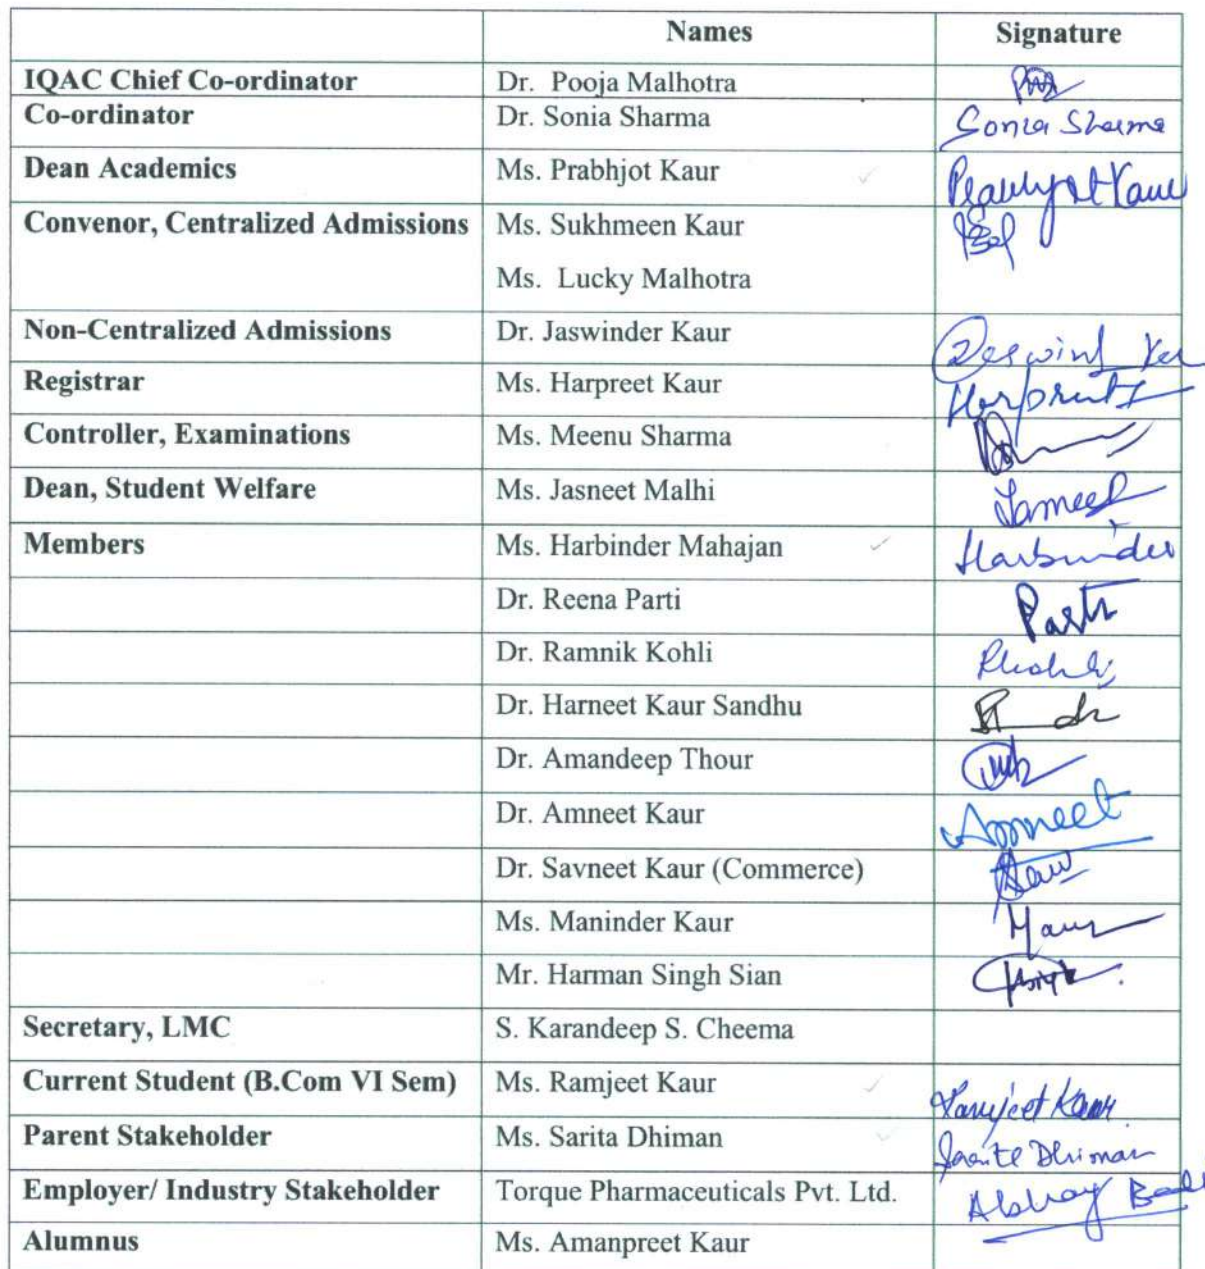 Names Signature
IQAC Chief Co-ordinator Dr. Pooja Malhotra
Co-ordinator Dr. Sonia Sharma Sonia Sharma
Dean Academics Ms. Prabhjot Kaur Kaur
Convenor, Centralized Admissions Ms. Sukhmeen Kaur
Ms. Lucky Malhotra
Non-Centralized Admissions Dr. Jaswinder Kaur
Registrar Ms. Harpreet Kaur
Controller, Examinations Ms. Meenu Sharma
Dean, Student Welfare Ms. Jasneet Malhi
Members Ms. Harbinder Mahajan Harbinder
Dr. Reena Parti Parti
Dr. Ramnik Kohli
Dr. Harneet Kaur Sandhu
Dr. Amandeep Thour
Dr. Amneet Kaur Amneet
Dr. Savneet Kaur (Commerce)
Ms. Maninder Kaur
Mr. Harman Singh Sian
Secretary, LMC S. Karandeep S. Cheema
Current Student (B.Com VI Sem) Ms. Ramjeet Kaur Kaur
Parent Stakeholder Ms. Sarita Dhiman Dhiman
Employer/ Industry Stakeholder Torque Pharmaceuticals Pvt. Ltd.
Alumnus Ms. Amanpreet Kaur